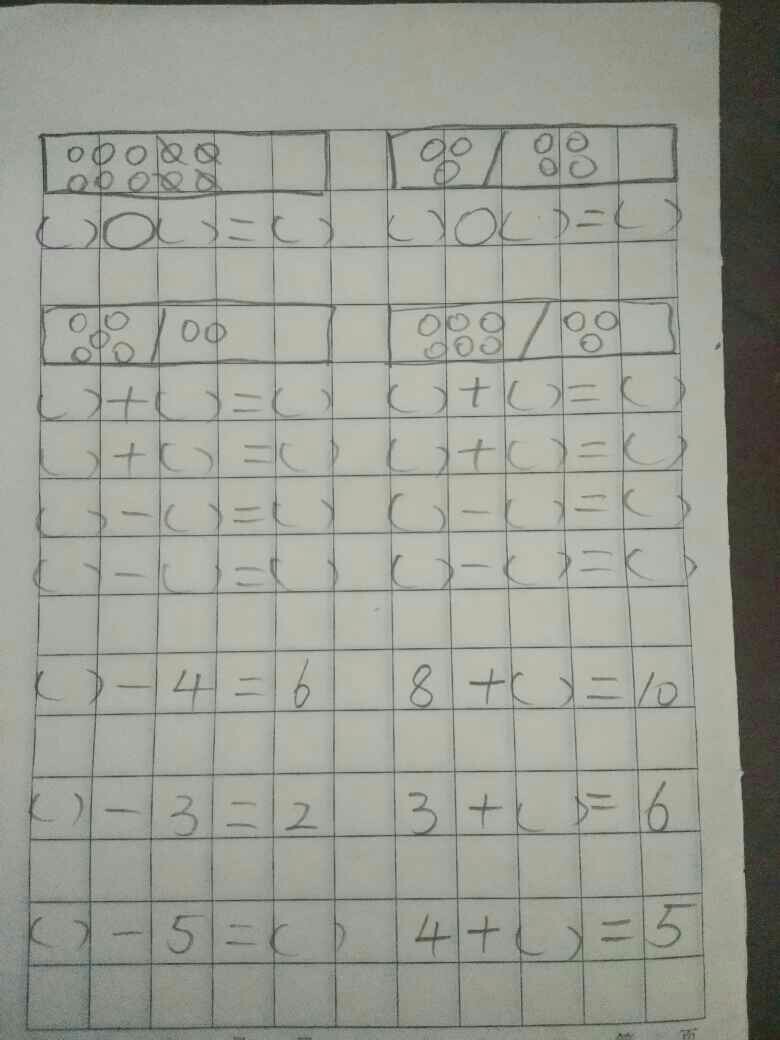 ( ) ○ ( ) = ( ) ( ) ○ ( ) = ( )
( ) + ( ) = ( ) ( ) + ( ) = ( )
( ) + ( ) = ( ) ( ) + ( ) = ( )
( ) - ( ) = ( ) ( ) - ( ) = ( )
( ) - ( ) = ( ) ( ) - ( ) = ( )
( ) - 4 = 6 8 + ( ) = 10
( ) - 3 = 2 3 + ( ) = 6
( ) - 5 = ( ) 4 + ( ) = 5